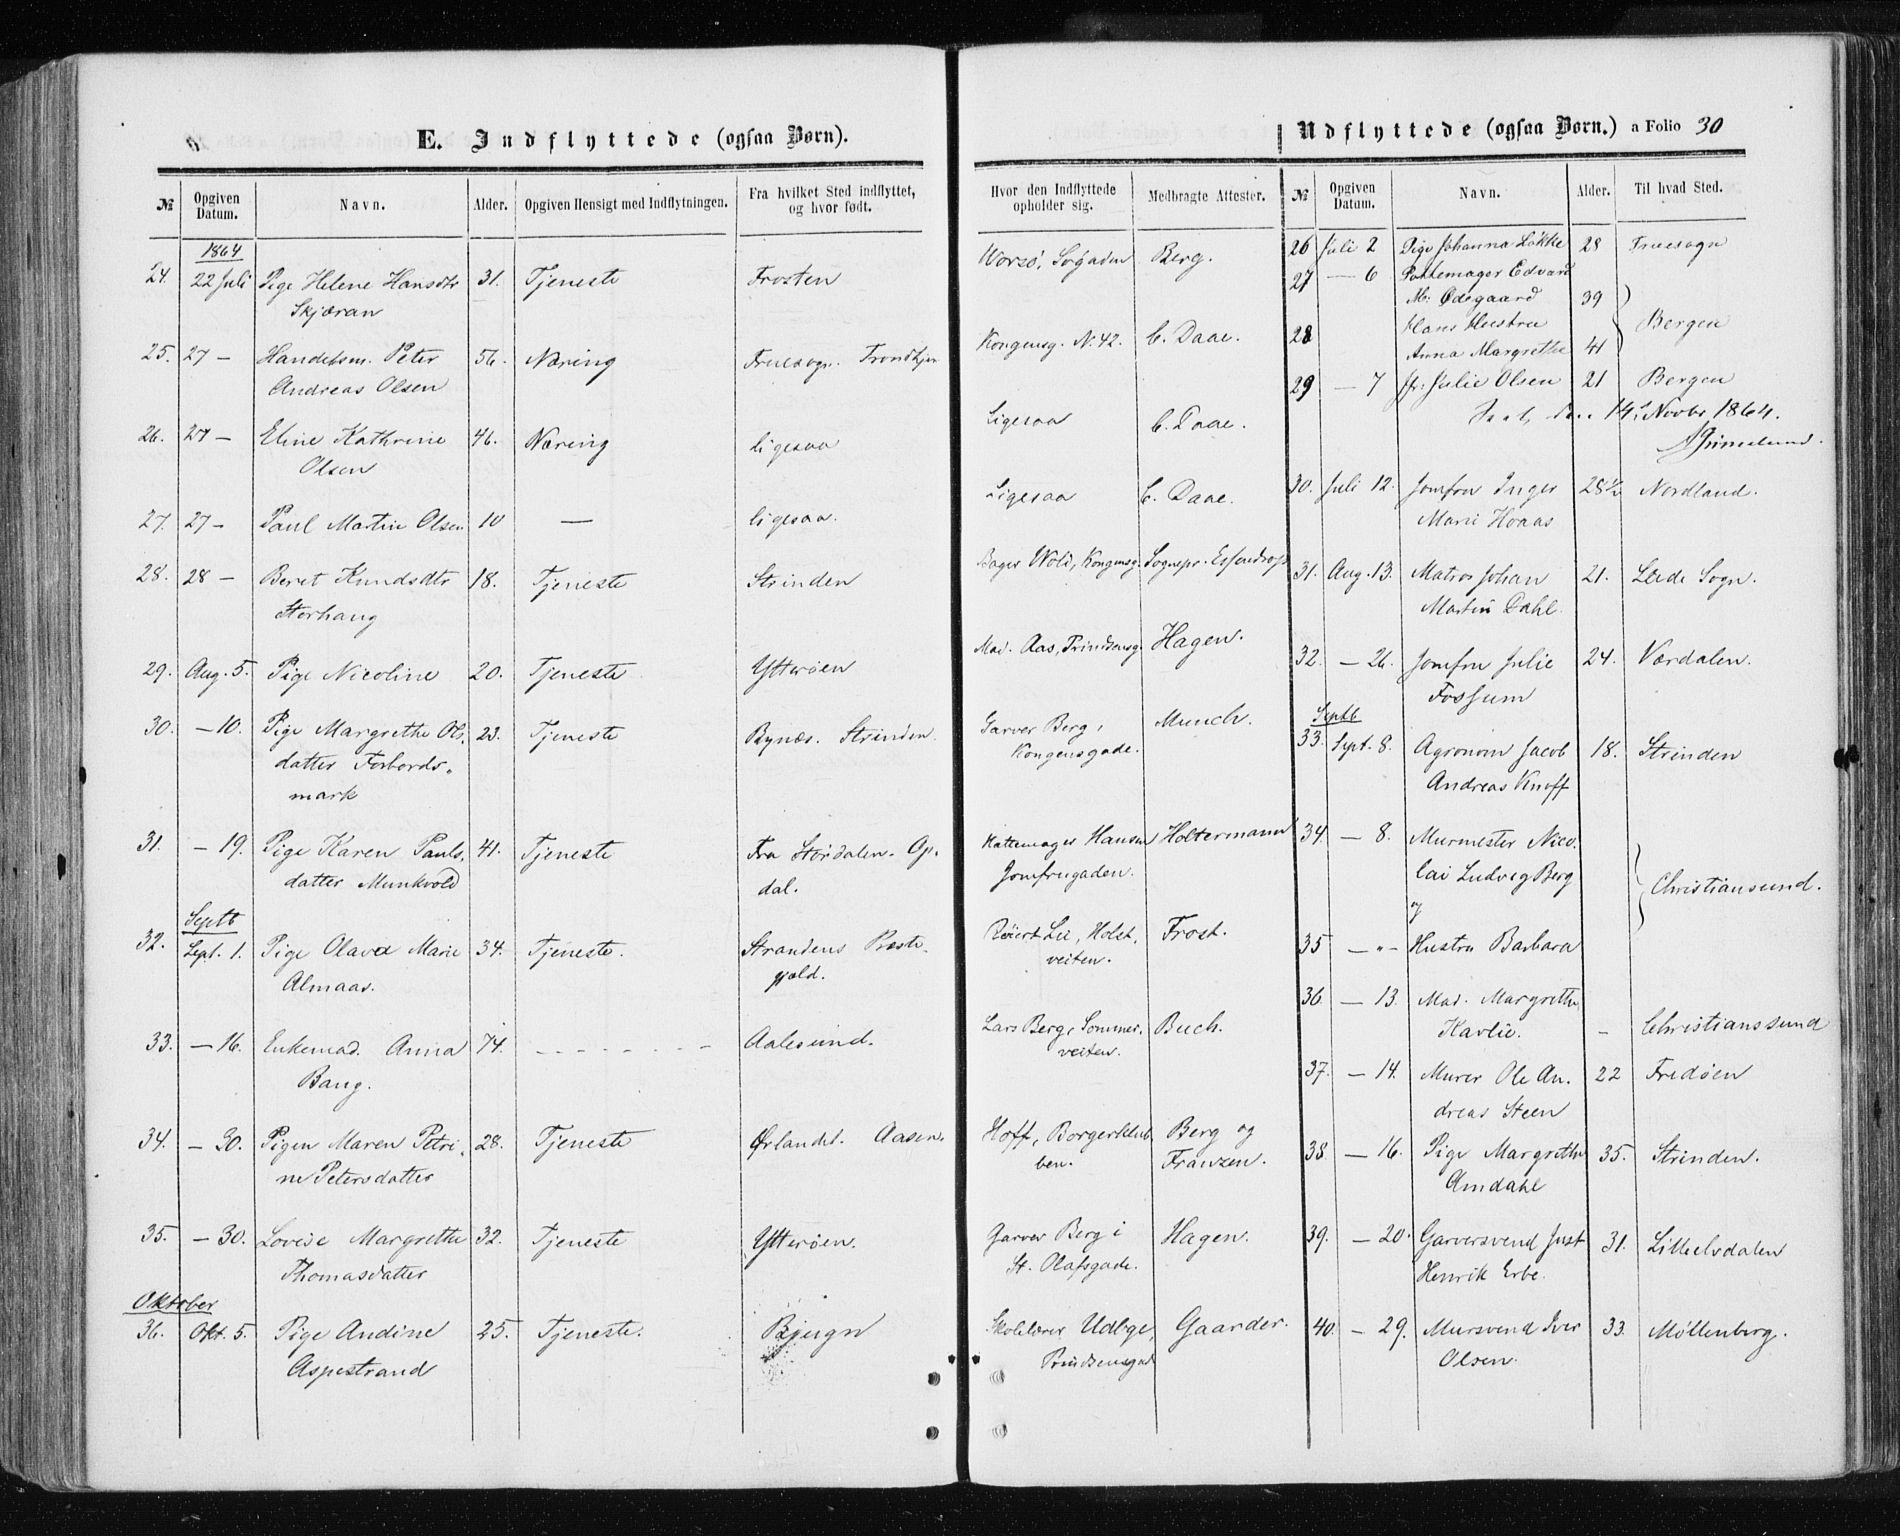 E. Indflyttede (ogsaa Børn).
№ Opgiven Datum. Navn. Alder. Opgiven Hensigt med Indflytningen. Fra hvilket Sted indflyttet, og hvor født.
1864
24. 22 Juli Pige Helene Hansdtr 31. Tjeneste Frosten
Skjæran
25. 27 — Handelsm. Peter 56. Næring Fruesogn. Trondhjem
Andreas Olsen
26. 27 — Eline Kathrine 46. Næring Ligesaa
Olsen
27. 27 — Paul Martin Olsen 10 — Ligesaa.
28. 28 — Beret Knudsdtr 18. Tjeneste Strinden
Storhaug
29. Aug. 5. Pige Nicoline 20. Tjeneste Ytterøen
30. — 10. Pige Margrethe Ols- 23. Tjeneste Bynæs. Strinden.
datter Forbords-
mark
31. — 19. Pige Karen Pauls- 41. Tjeneste Fra Størdalen. Op-
datter Munkvold dal.
Septb
32. Sept. 1. Pige Olava Marie 34. Tjeneste. Strandens Præste-
Almaas. gjæld.
33. — 16. Enkemad. Anna 74. - - - - - - - Aalesund.
Bang.
34. — 30. Pigen Maren Petri- 28. Tjeneste Ørlandet. Aasen.
ne Petersdatter
35. — 30. Lovise Margrethe 32. Tjeneste Ytterøen.
Thomasdatter
Oktober
36. Okt. 5. Pige Andine 25. Tjeneste. Bjugn
Aspestrand
Hvor den Indflyttede opholder sig. Medbragte Attester.
Berg.
Kongensg. N. 42. C. Daae.
Ligesaa C. Daae.
Ligesaa C. Daae.
Bager Wold, Kongensg. Sognepr. Essendrop
Mad. Aas, Prindsensg. Hagen.
Garver Berg, Munch.
Kongensgade.
Hattemager Hansen Holtermann
Jomfrugaden.
Lie, Holst- Frost.
veiten.
Lars Berg, Sommer- Buch.
veiten.
Hoff, Borgerklub- Berg og
ben. Franzen.
Garver Berg i Hagen.
St. Olafsgade.
Skolelærer Udbye, Gaarder.
Prindsensgad
Udflyttede (ogsaa Børn.) a Folio 30
№ Opgiven Datum. Navn. Alder. Til hvad Sted.
26 Juli 2 Pige Johanna Løkke 28 Fruesogn
27 — 6 Pottemager Edvard
M: Ødegaard 39
28 Hans Hustru Bergen
Anna Margrethe 41
29 — 7 Jfr: Julie Olsen 21 Bergen
14 Novbr 1864.
30. Juli 12. Jomfru Inger 28½ Nordland.
Marie Hoaas
31. Aug. 13. Matros Johan 21. Lade Sogn.
Martin Dahl.
32. — 26. Jomfru Julie 24. Værdalen.
Fossum
Septb
33. Sept. 8. Agronom Jacob 18. Strinden
Andreas Knoff
34. — 8. Murmester Nico-
lai Ludvig Berg Christiansund.
og
35 — „ — Hustru Barbara
36. — 13. Mad. Margrethe
Kavlie. - Christianssund
37. — 14. Murer Ole An- 22 Fredøen
dreas Steen
38. — 16. Pige Margrethe 35. Strinden.
Amdahl
39. — 20. Garversvend Just 31. Lilleelvdalen
Henrik Erbe.
40. — 29. Mursvend Iver 33. Møllenberg.
Olsen.